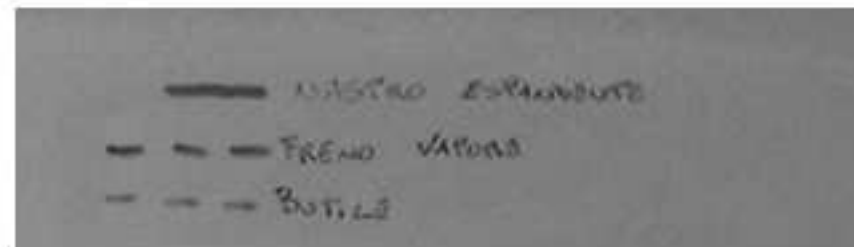 NASTRO ESPANDENTE
FRENO VAPORE
BUTILE